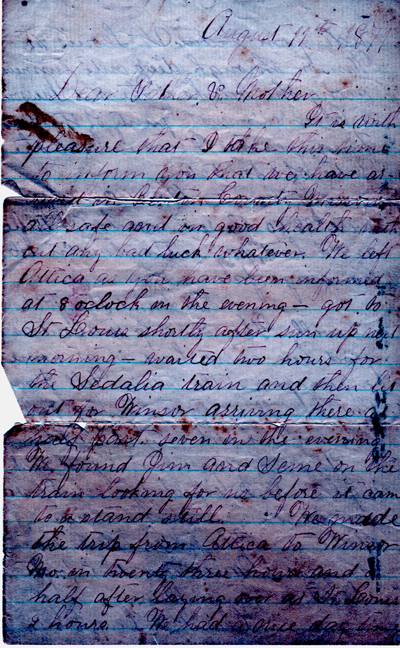 August 19th, 187
Dear Father & Mother
It is with
pleasure that I take this time
to inform you that we have ar
in Benton County Missouri
all safe and in good health with
out any bad luck whatever. We left
Attica as you have been informed
at 8 oclock in the evening – got to
St Louis shortly after sun up next
morning – waited two hours for
the Sedalia train and then lit
out for Winsor arriving there at
half past seven in the evening
We found Jim and Seme on the
train looking for us before it cam
to a stand still. We made
the trip from Attica to Winsor
Mo. in twenty three hours and a
half after laying over at St Louis
2 hours We had a nice day